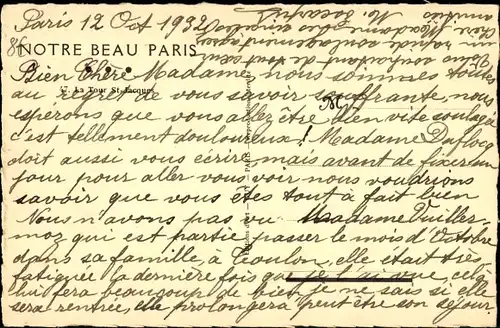 Paris 12 Oct 1932
NOTRE BEAU PARIS
57. La Tour St-Jacques
Bien Chère Madame, nous sommes toutes
au regret de vous savoir souffrante, nous
espérons que vous allez être bien vite soulagée
c'est tellement douloureux! Madame Duflocq
doit aussi vous écrire, mais avant de fixer un
jour pour aller vous voir nous voudrions
savoir que vous êtes tout à fait bien
Nous n'avons pas vu Madame Vuiller-
moz qui est partie passer le mois d'Octobre
dans sa famille, à Toulon, elle était très
fatiguée la dernière fois que je l'ai vue, cela
lui fera beaucoup de bien, je ne sais si elle
sera rentrée, elle prolongera peut être son séjour.
chère Madame
amitiés